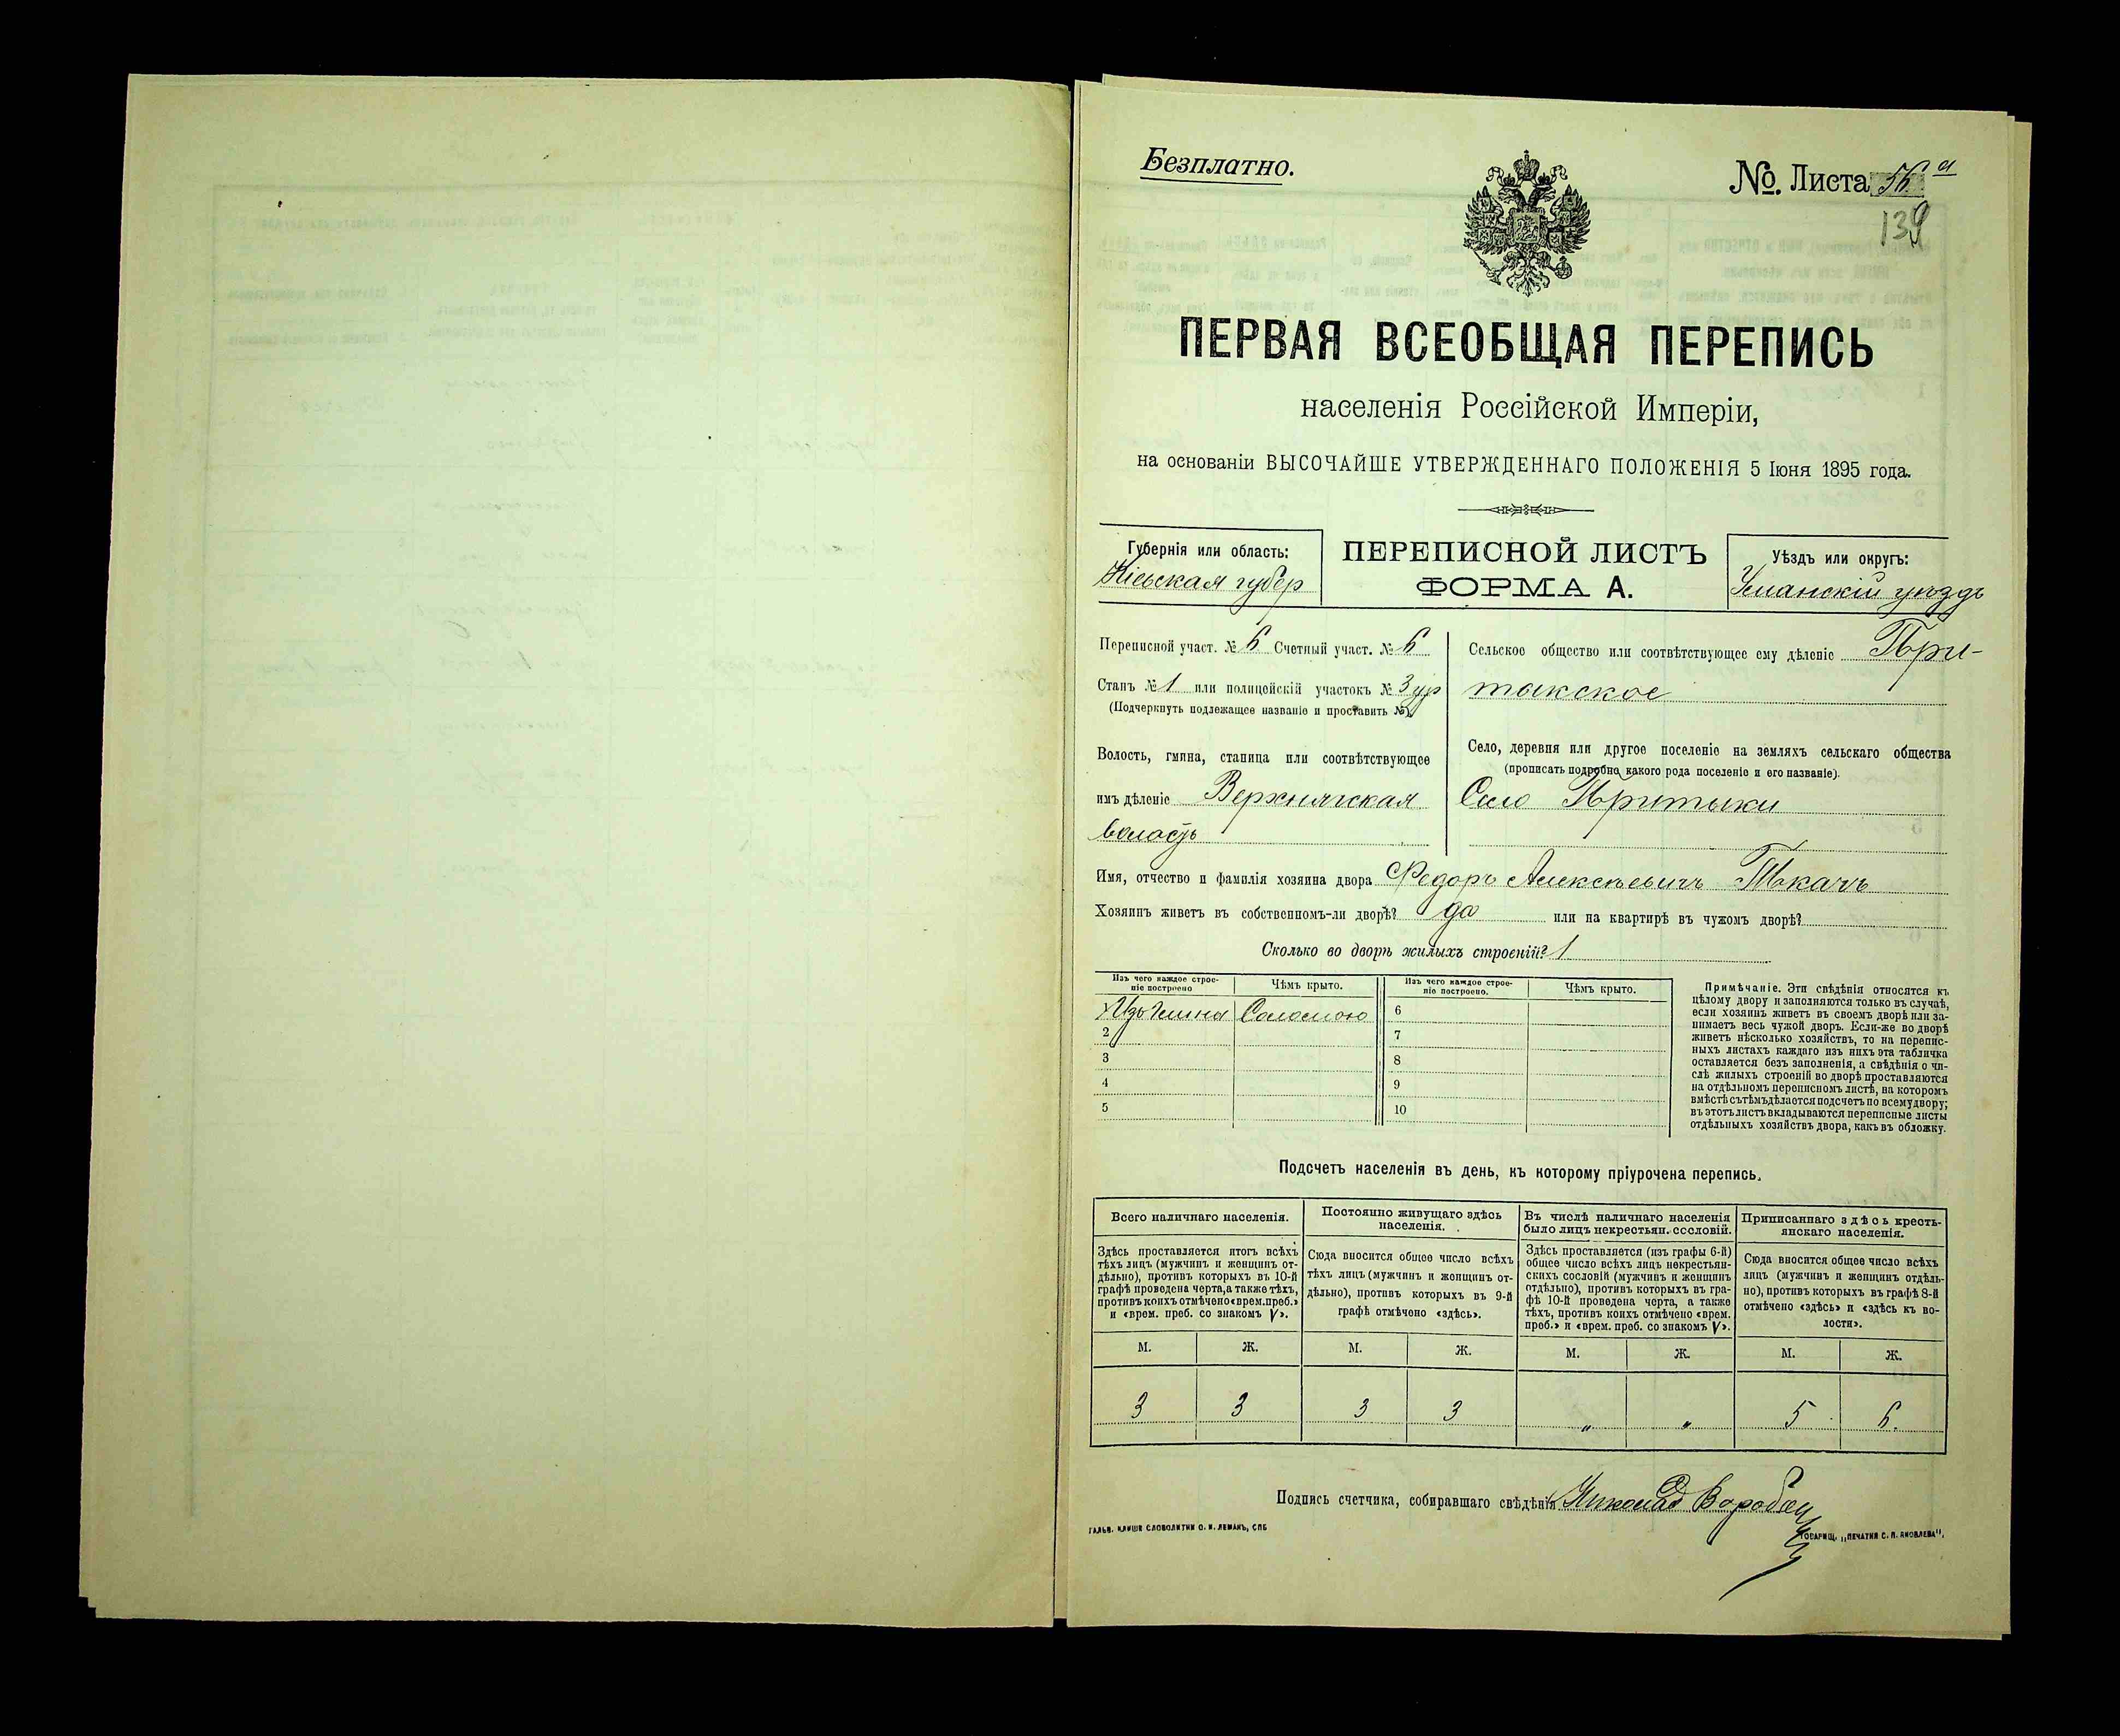 Безплатно.
№. Листа 56 а
139
ПЕРВАЯ ВСЕОБЩАЯ ПЕРЕПИСЬ
населенія Россійской Имперіи,
на основаніи ВЫСОЧАЙШЕ УТВЕРЖДЕННАГО ПОЛОЖЕНІЯ 5 Іюня 1895 года.
Губернія или область:
Кіевская губер
ПЕРЕПИСНОЙ ЛИСТЪ
ФОРМА А.
Уѣздъ или округъ:
Уманскій уѣздъ
Переписной участ. № 6 Счетный участ. № 6
Станъ № 1 или полицейскій участокъ № 3 ур
(Подчеркнуть подлежащее названіе и проставить №).
Волость, гмина, станица или соотвѣтствующее
имъ дѣленіе Верхнячская
волость
Сельское общество или соотвѣтствующее ему дѣленіе При-
тыкское
Село, деревня или другое поселеніе на земляхъ сельскаго общества
(прописать подробно, какого рода поселеніе и его названіе).
Село Притыки
Имя, отчество и фамилія хозяина двора Федоръ Алексѣевичъ Ткачъ
Хозяинъ живетъ въ собственномъ-ли дворѣ? да или на квартирѣ въ чужомъ дворѣ?
Сколько во дворѣ жилыхъ строеній? 1
Изъ чего каждое строе-
ніе построено
Чѣмъ крыто.
Изъ чего каждое строе-
ніе построено.
Чѣмъ крыто.
1 Изъ глины Соломою 6
2 7
3 8
4 9
5 10
Примѣчаніе. Эти свѣдѣнія относятся къ
цѣлому двору и заполняются только въ случаѣ,
если хозяинъ живетъ въ своемъ дворѣ или за-
нимаетъ весь чужой дворъ. Если-же во дворѣ
живетъ нѣсколько хозяйствъ, то на перепис-
ныхъ листахъ каждаго изъ нихъ эта табличка
оставляется безъ заполненія, а свѣдѣнія о чи-
слѣ жилыхъ строеній во дворѣ проставляются
на отдѣльномъ переписномъ листѣ, на которомъ
вмѣстѣ съ тѣмъ дѣлается подсчетъ по всему двору;
въ этотъ листъ вкладываются переписные листы
отдѣльныхъ хозяйствъ двора, какъ въ обложку.
Подсчетъ населенія въ день, къ которому пріурочена перепись.
Всего наличнаго населенія.
Здѣсь проставляется итогъ всѣхъ
тѣхъ лицъ (мужчинъ и женщинъ от-
дѣльно), противъ которыхъ въ 10-й
графѣ проведена черта, а также тѣхъ,
противъ коихъ отмѣчено «врем. преб.»
и «врем. преб. со знакомъ V».
Постоянно живущаго здѣсь
населенія.
Сюда вносится общее число всѣхъ
тѣхъ лицъ (мужчинъ и женщинъ от-
дѣльно), противъ которыхъ въ 9-й
графѣ отмѣчено «здѣсь».
Въ числѣ наличнаго населенія
было лицъ некрестьян. сословій.
Здѣсь проставляется (изъ графы 6-й)
общее число всѣхъ лицъ некрестьян-
скихъ сословій (мужчинъ и женщинъ
отдѣльно), противъ которыхъ въ гра-
фѣ 10-й проведена черта, а также
тѣхъ, противъ коихъ отмѣчено «врем.
преб.» и «врем. преб. со знакомъ V».
Приписаннаго здѣсь кресть-
янскаго населенія.
Сюда вносится общее число всѣхъ
лицъ (мужчинъ и женщинъ отдѣль-
но), противъ которыхъ въ графѣ 8-й
отмѣчено «здѣсь» и «здѣсь къ во-
лости».
М. Ж. М. Ж. М. Ж. М. Ж.
3 3 3 3 „ „ 5 6.
Подпись счетчика, собиравшаго свѣдѣнія Николай
ГАЛЬВ. КЛИШЕ СЛОВОЛИТНИ О. И. ЛЕМАНЪ, СПБ
ТОВАРИЩ. „ПЕЧАТНЯ С. П. ЯКОВЛЕВА".